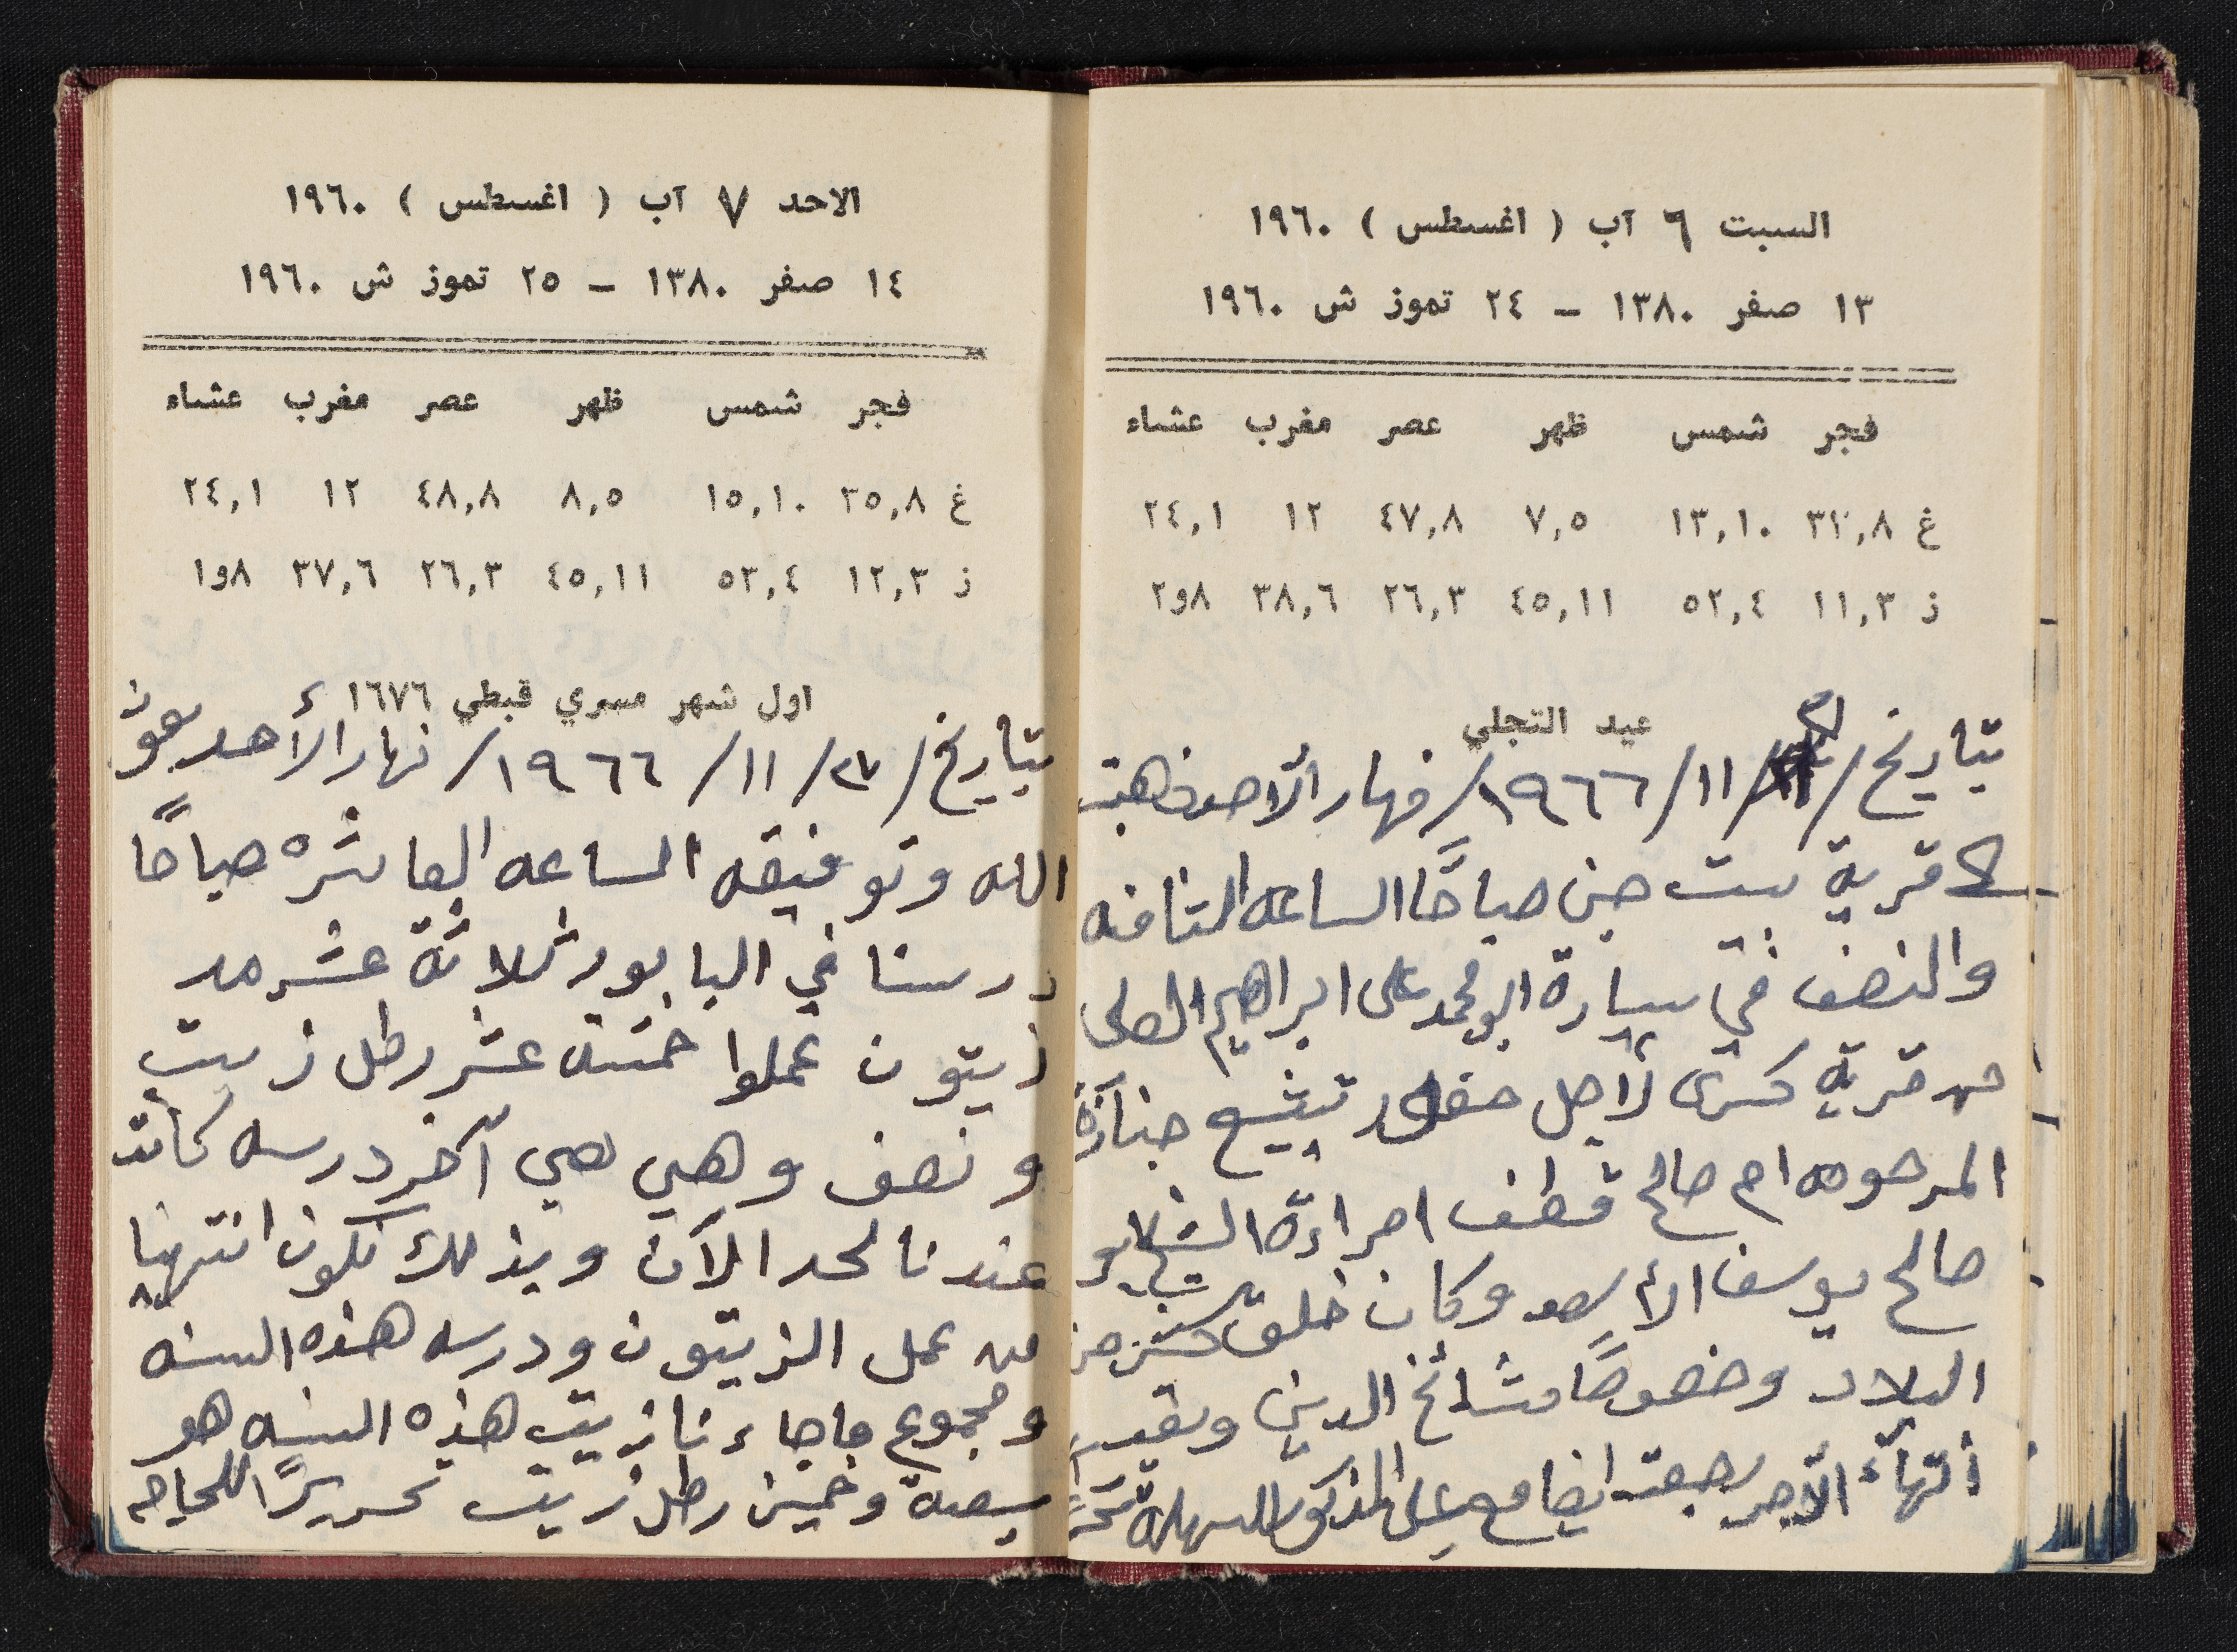 السبت ٦ آب ( اغسطس ) ١٩٦٠
١٣ صفر ١٣٨٠ – ٢٤ تموز ش ١٩٦٠
فجر شمس ظهر عصر مغرب عشاء
غ ٣٣,٨ ١٣,١٠ ٧,٥ ٤٧,٨ ١٢ ٢٤,١
ز ١١,٣ ٥٢,٤ ٤٥,١١ ٢٦,٣ ٣٨,٦ ٨و٢
عيد التجلي
بتاريخ / /١١/١٩٦٦/ نهار الأحد ذهبت
الا قرية بيت جن صباحًا الساعه الثامنه
والنصف في سيارة ابو محمد علي ابراهيم الصلي
من قرية كسرى لأجل حضور تشيع جنازة
المرحومه ام صالح قطف امراءة الشيخ ابو
صالح يوسف الأسعد وكان خلق كثير من
البلاد وخصوصًا مشائخ الدين وبعد
انتهاء الأجر رجعت ايضا مع علي المذكور
الاحد ٧ آب ( اغسطس ) ١٩٦٠
١٤ صفر ١٣٨٠ – ٢٥ تموز ش ١٩٦٠
فجر شمس ظهر عصر مغرب عشاء
غ ٣٥,٨ ١٥,١٠ ٨,٥ ٤٨,٨ ١٢ ٢٤,١
ز ١٢,٣ ٥٣,٤ ٤٥,١١ ٢٦,٣ ٣٧,٦ ٨و١
اول شهر مسري قبطي ١٦٧٦
بتاريخ /٢٧/١١/١٩٦٦/ نهار الأحد بعون
الله وتوفيقه الساعه العاشره صباحًا
درسنا في البابور ثلاثة عشر مد
زيتون عملوا خمسة عشر رطل زيت
ونصف وهي هي آخر درسه كانت
عندنا لحد الآن وبذلك نكون انتهينا
من عمل الزيتون ودرسه هذه السنه
ومجموع ما جاءنا زيت هذه السنه هو
سبعة وخمسين رطل زيت تحريرًا للحاجه